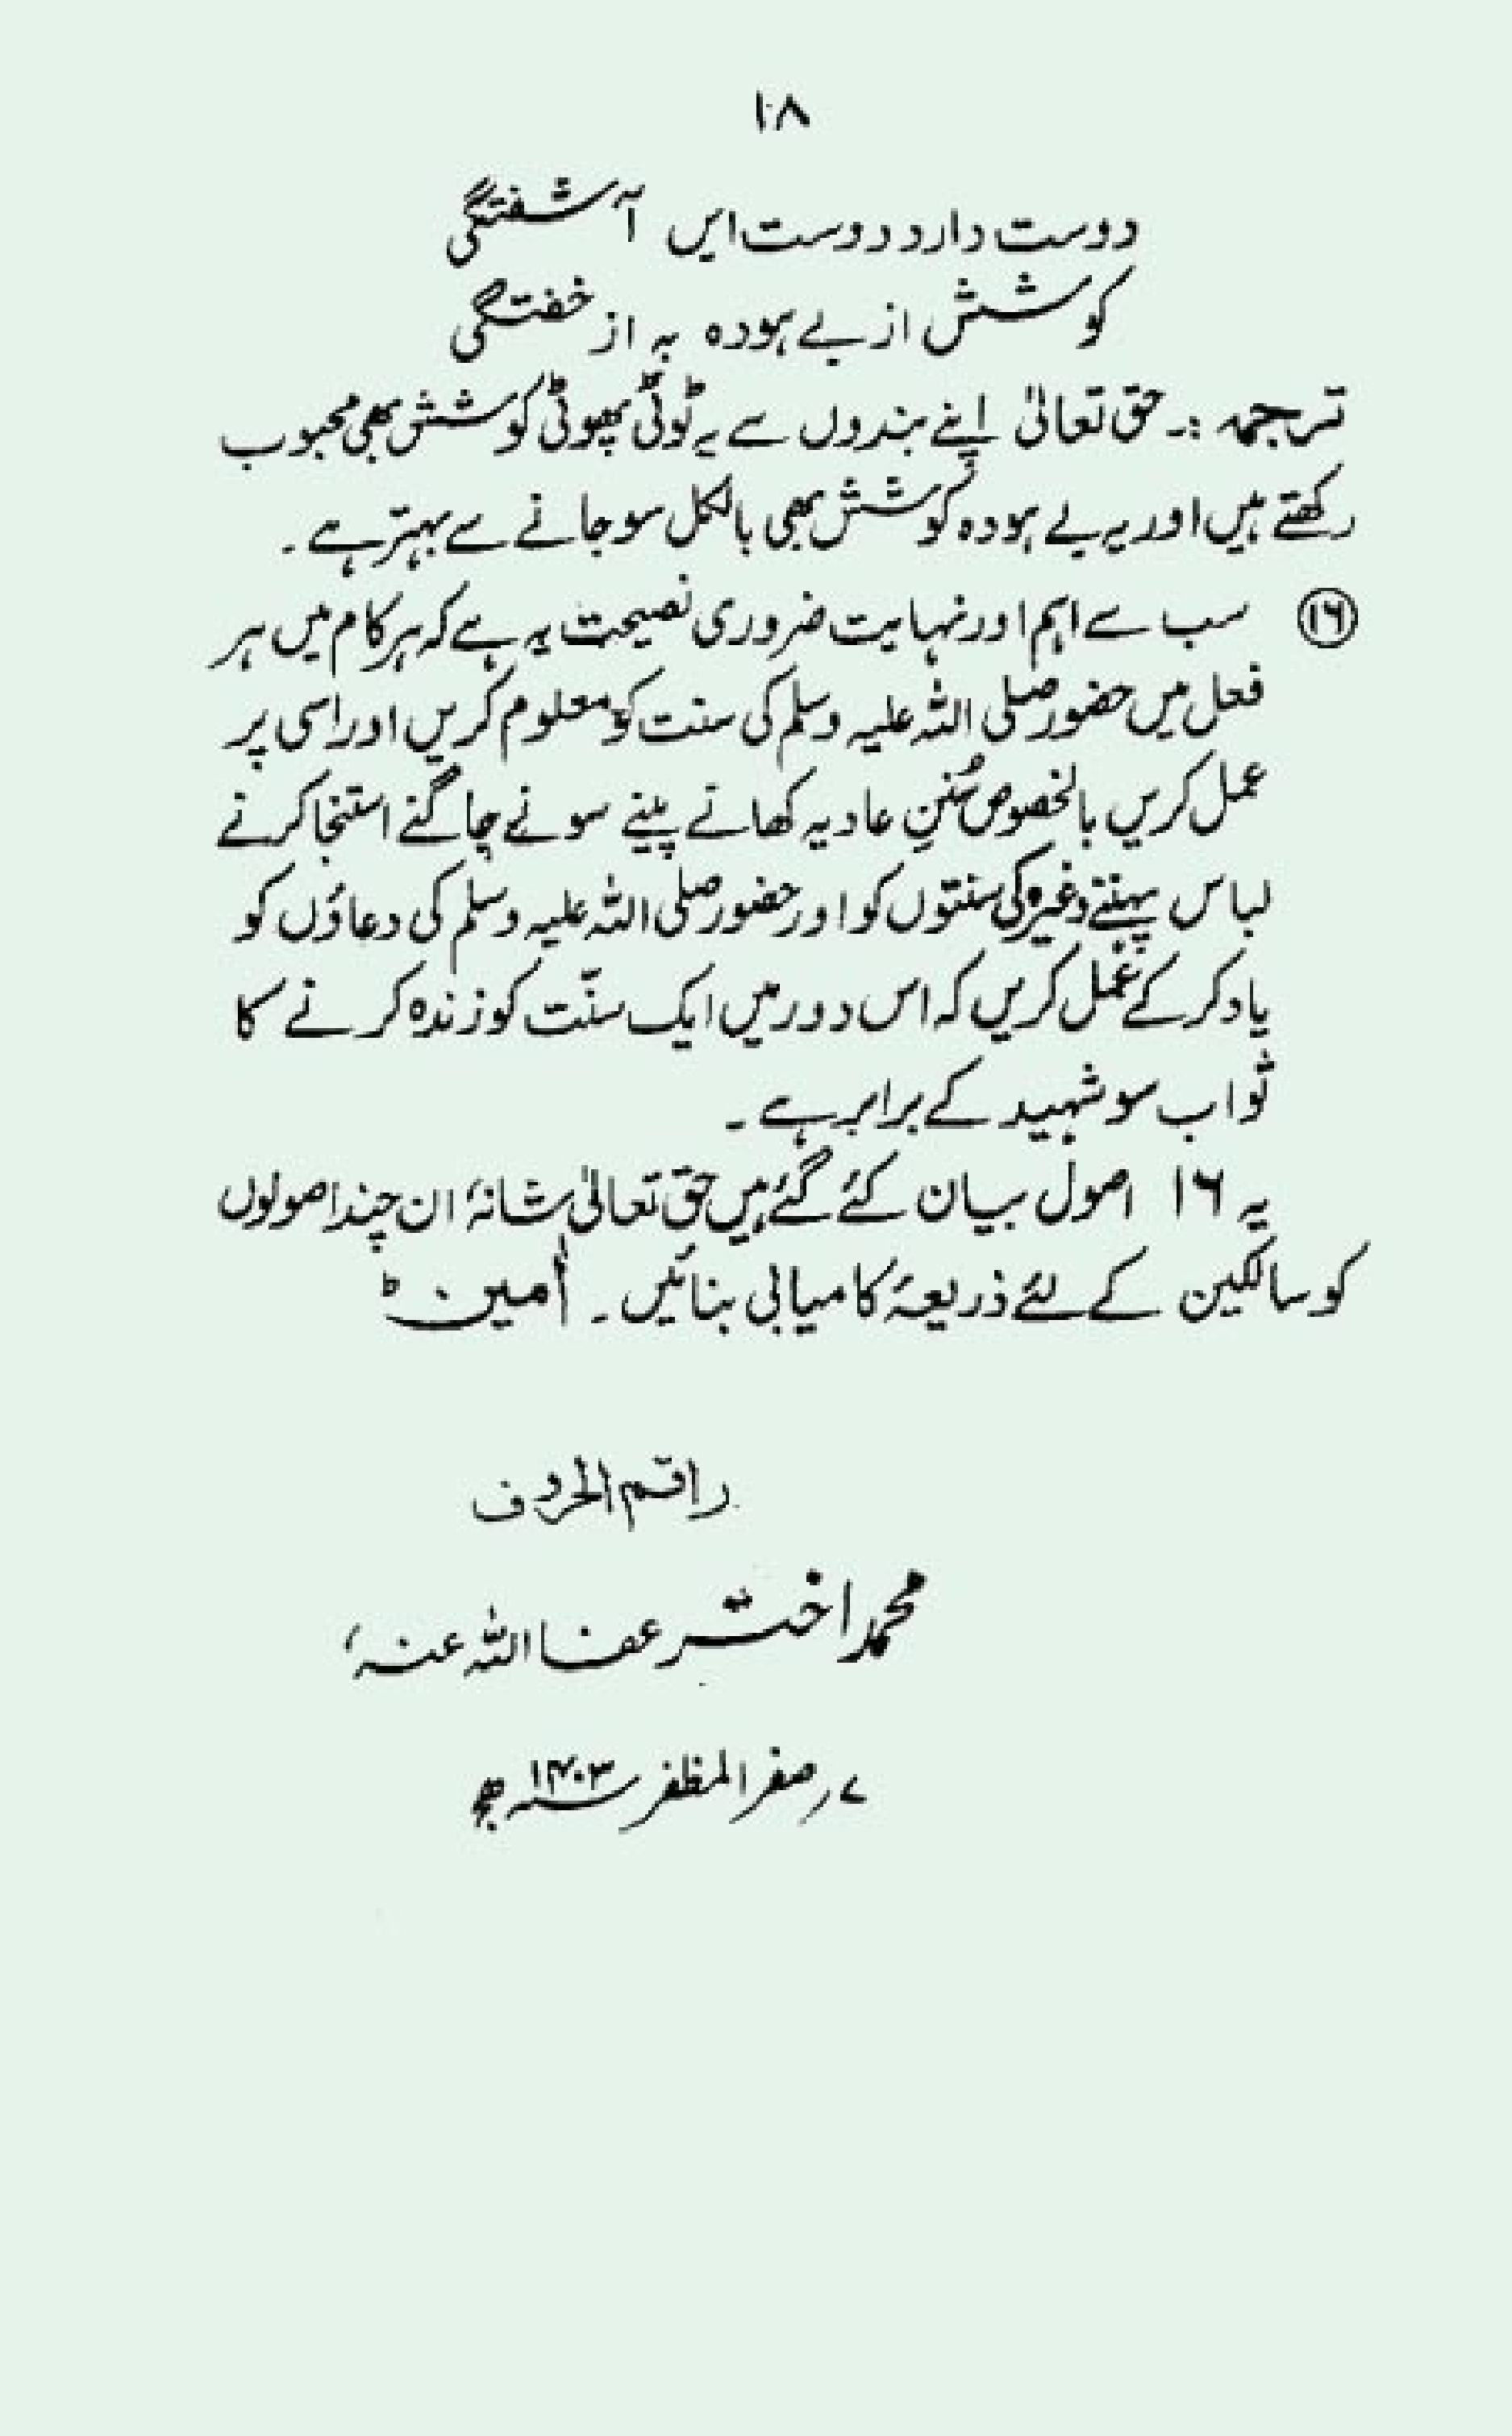 ۱۸
دوست دارد دوست ایں آشفتگی
کوشش از بے ہودہ بہ از خفتگی
ترجمہ :۔ حق تعالیٰ اپنے بندوں سے یہ ٹوٹی پھوٹی کوشش بھی محبوب
رکھتے ہیں اور یہ بے ہودہ کوشش بھی بالکل سو جانے سے بہتر ہے ۔
⑯ سب سے اہم اور نہایت ضروری نصیحت یہ ہے کہ ہر کام میں ہر
فعل میں حضور صلی اللہ علیہ وسلم کی سنت کو معلوم کریں اور اسی پر
عمل کریں بالخصوص سُننِ عادیہ کھانے پینے سونے جاگنے استنجا کرنے
لباس پہننے وغیرہ کی سنتوں کو اور حضور صلی اللہ علیہ وسلم کی دعاؤں کو
یاد کر کے عمل کریں کہ اس دور میں ایک سنّت کو زندہ کرنے کا
ثواب سو شہید کے برابر ہے ۔
یہ ۱۶ اصول بیان کئے گئے ہیں حق تعالیٰ شانہٗ ان چند اصولوں
کو سالکین کے لئے ذریعۂ کامیابی بنائیں ۔ اٰمین ط
راقم الحروف
محمد اختر عفا اللہ عنہٗ
۷؍ صفر المظفر سنہ ۱۴۰۳ ھج